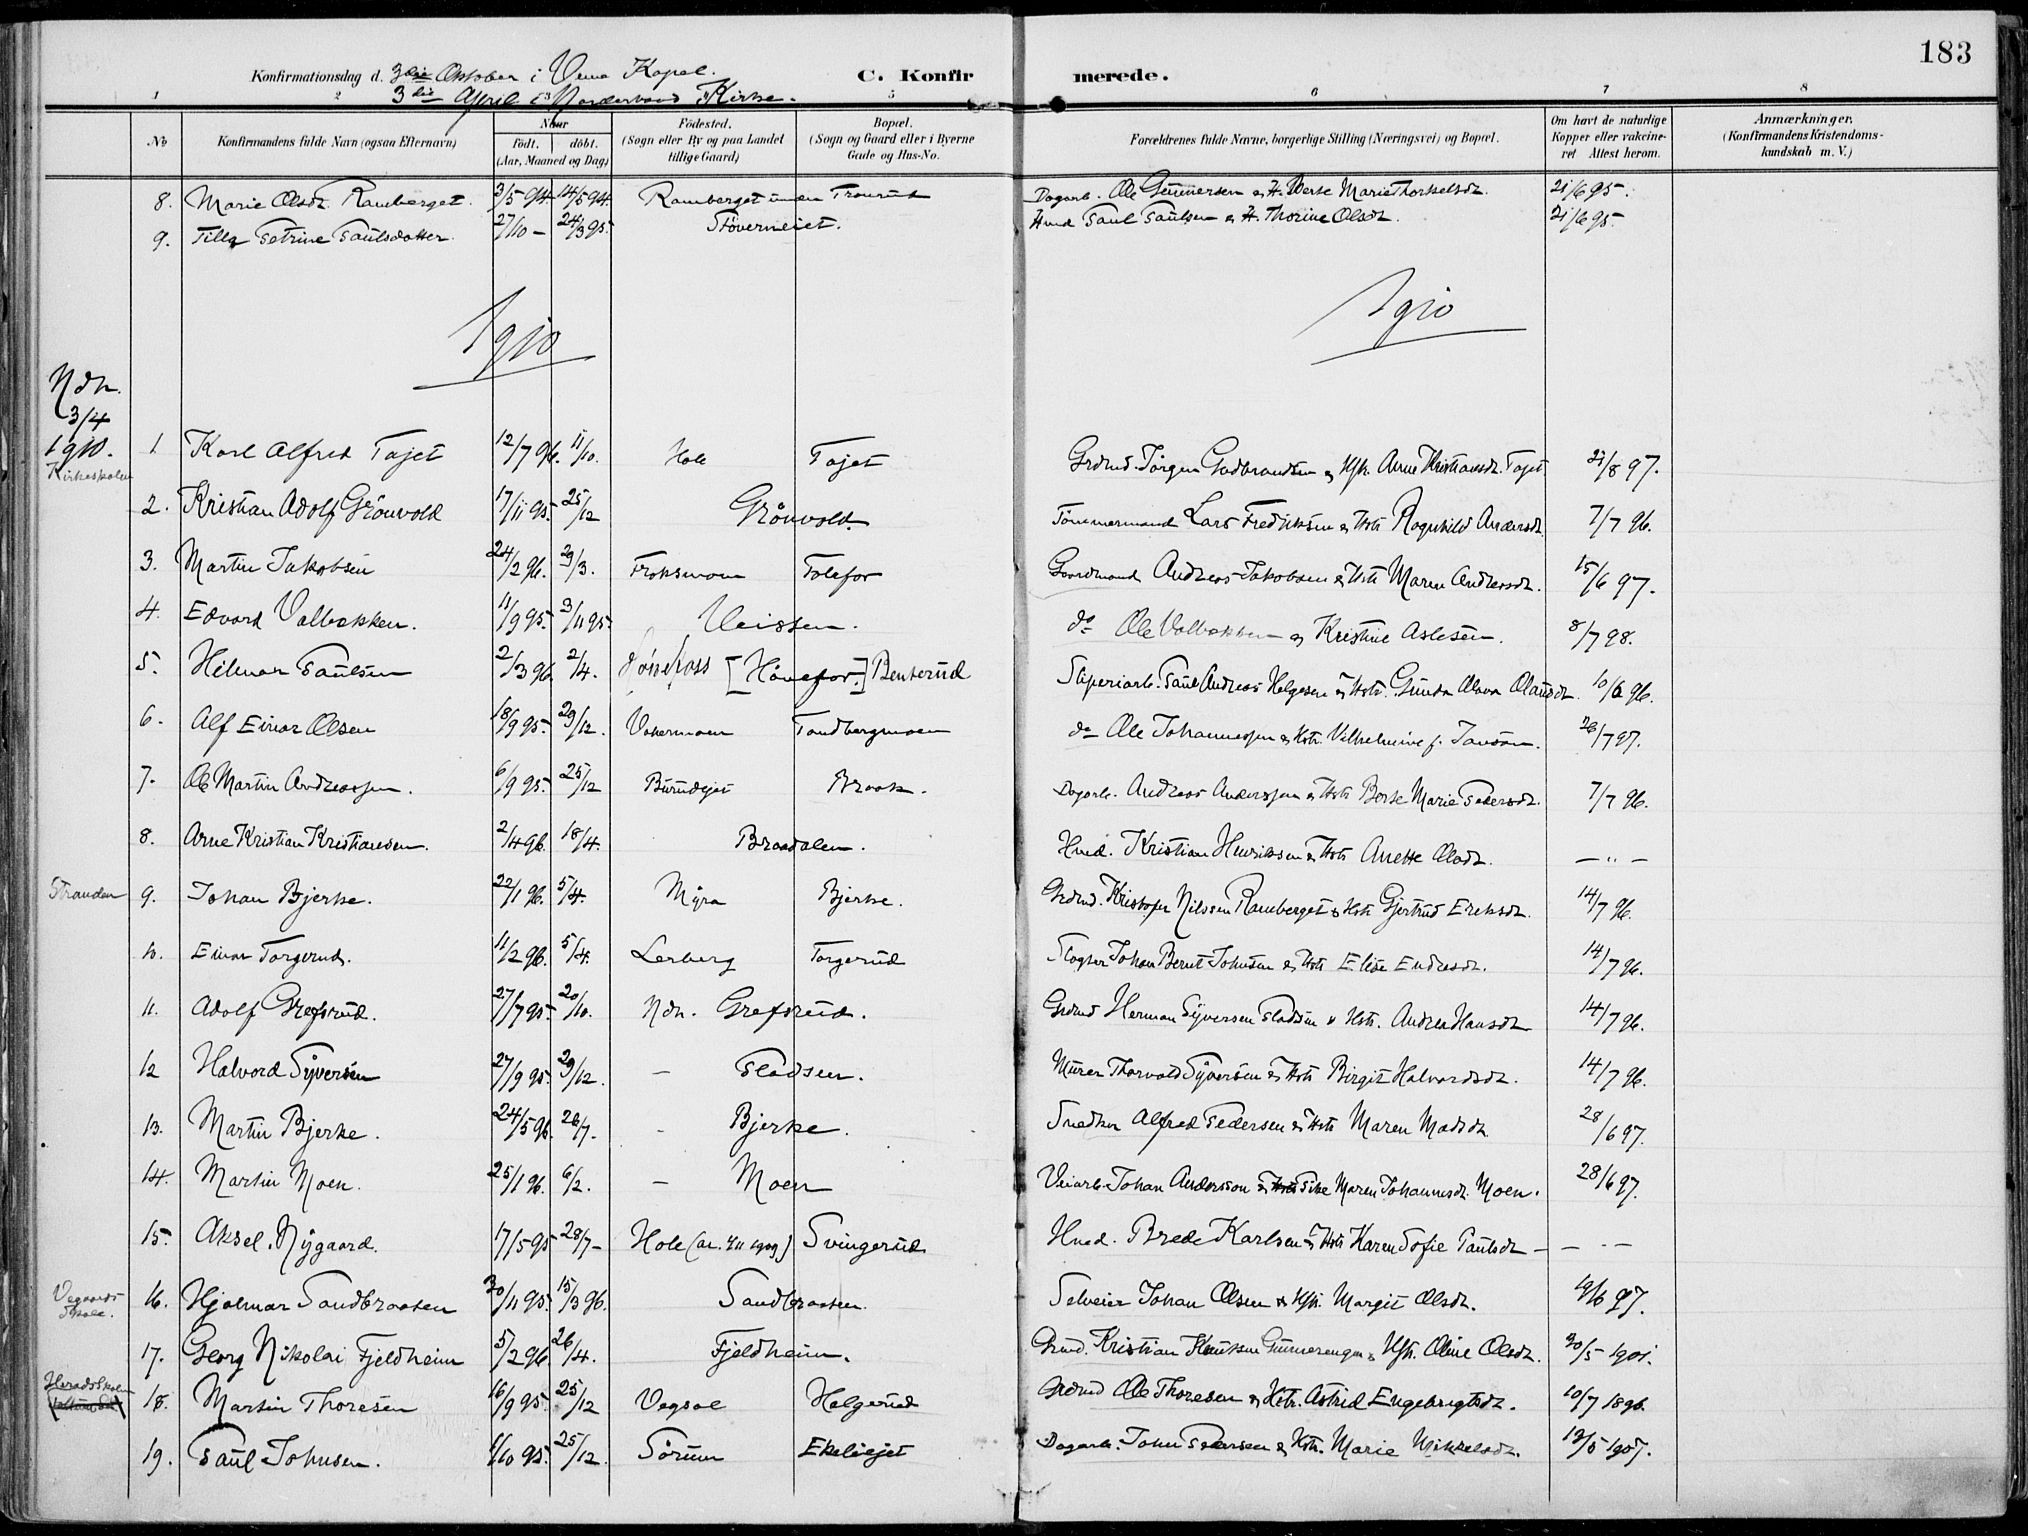 183
Konfirmationsdag d. 3die Oktober i Veme Kapel. C. Konfirmerede.
3die April i Norderhovs Kirke.
1 2 3 4 5 6 7 8
No Konfirmandens fulde Navn (ogsaa Efternavn) Naar født. døbt. (Aar, Maaned og Dag) Fødested. (Sogn eller By og paa Landet tillige Gaard) Bopæl. (Sogn og Gaard eller i Byerne Gade og Hus-No. Forældrenes fulde Navne, borgerlige Stilling (Næringsvei) og Bopæl. Om havt de naturlige Kopper eller vakcineret Attest herom. Anmærkninger. (Konfirmandens Kristendomskundskab m. V.)
8. Marie Olsdt. Ramberget. 3/5 94 14/5 94. Ramberget under Dagarb. Ole Gunnersen & H. Berte Marie Thorkelsdt. 21/6 95.
9. Tilla Petrine Paulsdatter. 27/10 – 24/3 95. Støverneiet. Hmd Paul Paulsen & H. Thorine Olsdt. 21/6 95.
1910 1910
Ndh.
3/4
1910.
Kirkeskolen
1 Karl Alfred Tajet 12/7 96. 11/10. Hole Tajet Grdmd. Jørgen Gudbrandsen & Hfr. Anne Kristiansdt. Tajet 21/8 97.
2. Kristian Adolf Grönvold 17/11 95. 25/12 Grönvold. Tømmermand Lars Fredriksen & Hstr Ragnhild Andersdt. 7/7 96.
3. Martin Jakobsen 24/2 96. 29/3. Froksmoen Tolefor Gaardmand Andreas Jakobsen & Hstr Maren Andersdt. 15/6 97.
4. Edvard Valbakken. 11/9 95. 3/11 95. Veissen. do Ole Valbakken & Kristine Aslesen. 8/7 98.
5. Hilmar Paulsen 2/3 96. 2/4. Hönefoss [Hönefos.] Benterud Sliperiarb. Paul Andreas Helgesen & Hstr. Gunda Olava Olausdt. 10/6 96.
6. Alf Einar Olsen 18/9 95. 29/12. Vakermoen Tandbergmoen do Ole Johannessen & Hstr. Vilhelmine f. Jansen. 26/7 97.
7. Ole Martin Andreassen. 6/9 95. 25/12 Burudejet Braak. Dagarb. Andreas Anderssen & Hstr Berte Marie Pedersdt. 7/7 96.
8. Arne Kristian Kristiansen. 2/4 96. 18/4. Braadalen. Hmd. Kristian Henriksen & Hstr Anette Olsdt. — „ —
Stranden 9. Johan Bjerke. 22/1 96. 5/4. Myra Bjerke. Grdmd. Kristofer Nilssen Ramberget & Hstr Gjertrud Eriksdt. 14/7 96.
10. Einar Torgerud. 11/2 96. 5/4. Lerberg Torgerud Johan Bernt Johnsen & Hstr Elise Endresdt. 14/7 96.
11. Adolf Grefsrud. 27/7 95. 20/10. Ndh. Grefsrud. Grdmd Herman Syversen Pladsen & Hstr. Andrea Hansdt 14/7 96.
12 Halvord Syversen 27/9 95. 29/12. — Pladsen. Murer Thorvald Syversen & Hstr Birgit Halvordsdt. 14/7 96.
13. Martin Bjerke. 24/5 96. 26/7. – Bjerke. Snedker Alfred Pedersen & Hstr Maren Madsdt. 28/6 97.
14. Martin Moen. 25/1 96. 6/2. — Moen Veiarb. Johan Andersson & Pike Maren Johannesdt. Moen. 28/6 97.
15. Aksel Nygaard. 17/5 95 28/7 – Hole Svingerud Hmd. Brede Karlsen & Hstr Karen Sofie Paulsdt – — . —
Vegaards Skole. 16. Hjalmar Sandbraaten 30/11 95. 15/3 96. Sandbraaten. Selveier Johan Olsen & Hfr. Margit Olsdt. 19/6 97.
17. Georg Nikolai Fjeldheim 5/2 96. 26/4. Fjeldheim. Grmd. Kristian Knutsen Gunnerengen & Hfr. Oline Olsdt. 30/5 1901.
Heradsskolen 18. Martin Thoresen 16/9 95. 25/12 Vegsal Helgerud Grdmd Ole Thoresen & Hstr. Astrid Engebrigtsdt. 10/7 1896.
19. Paul Johnsen. 1/10 95. 25/12. Sörum Ekeleiejet Dagarb. John Pedersen & Hstr. Marie Mikkelsdt. 19/5 1907.